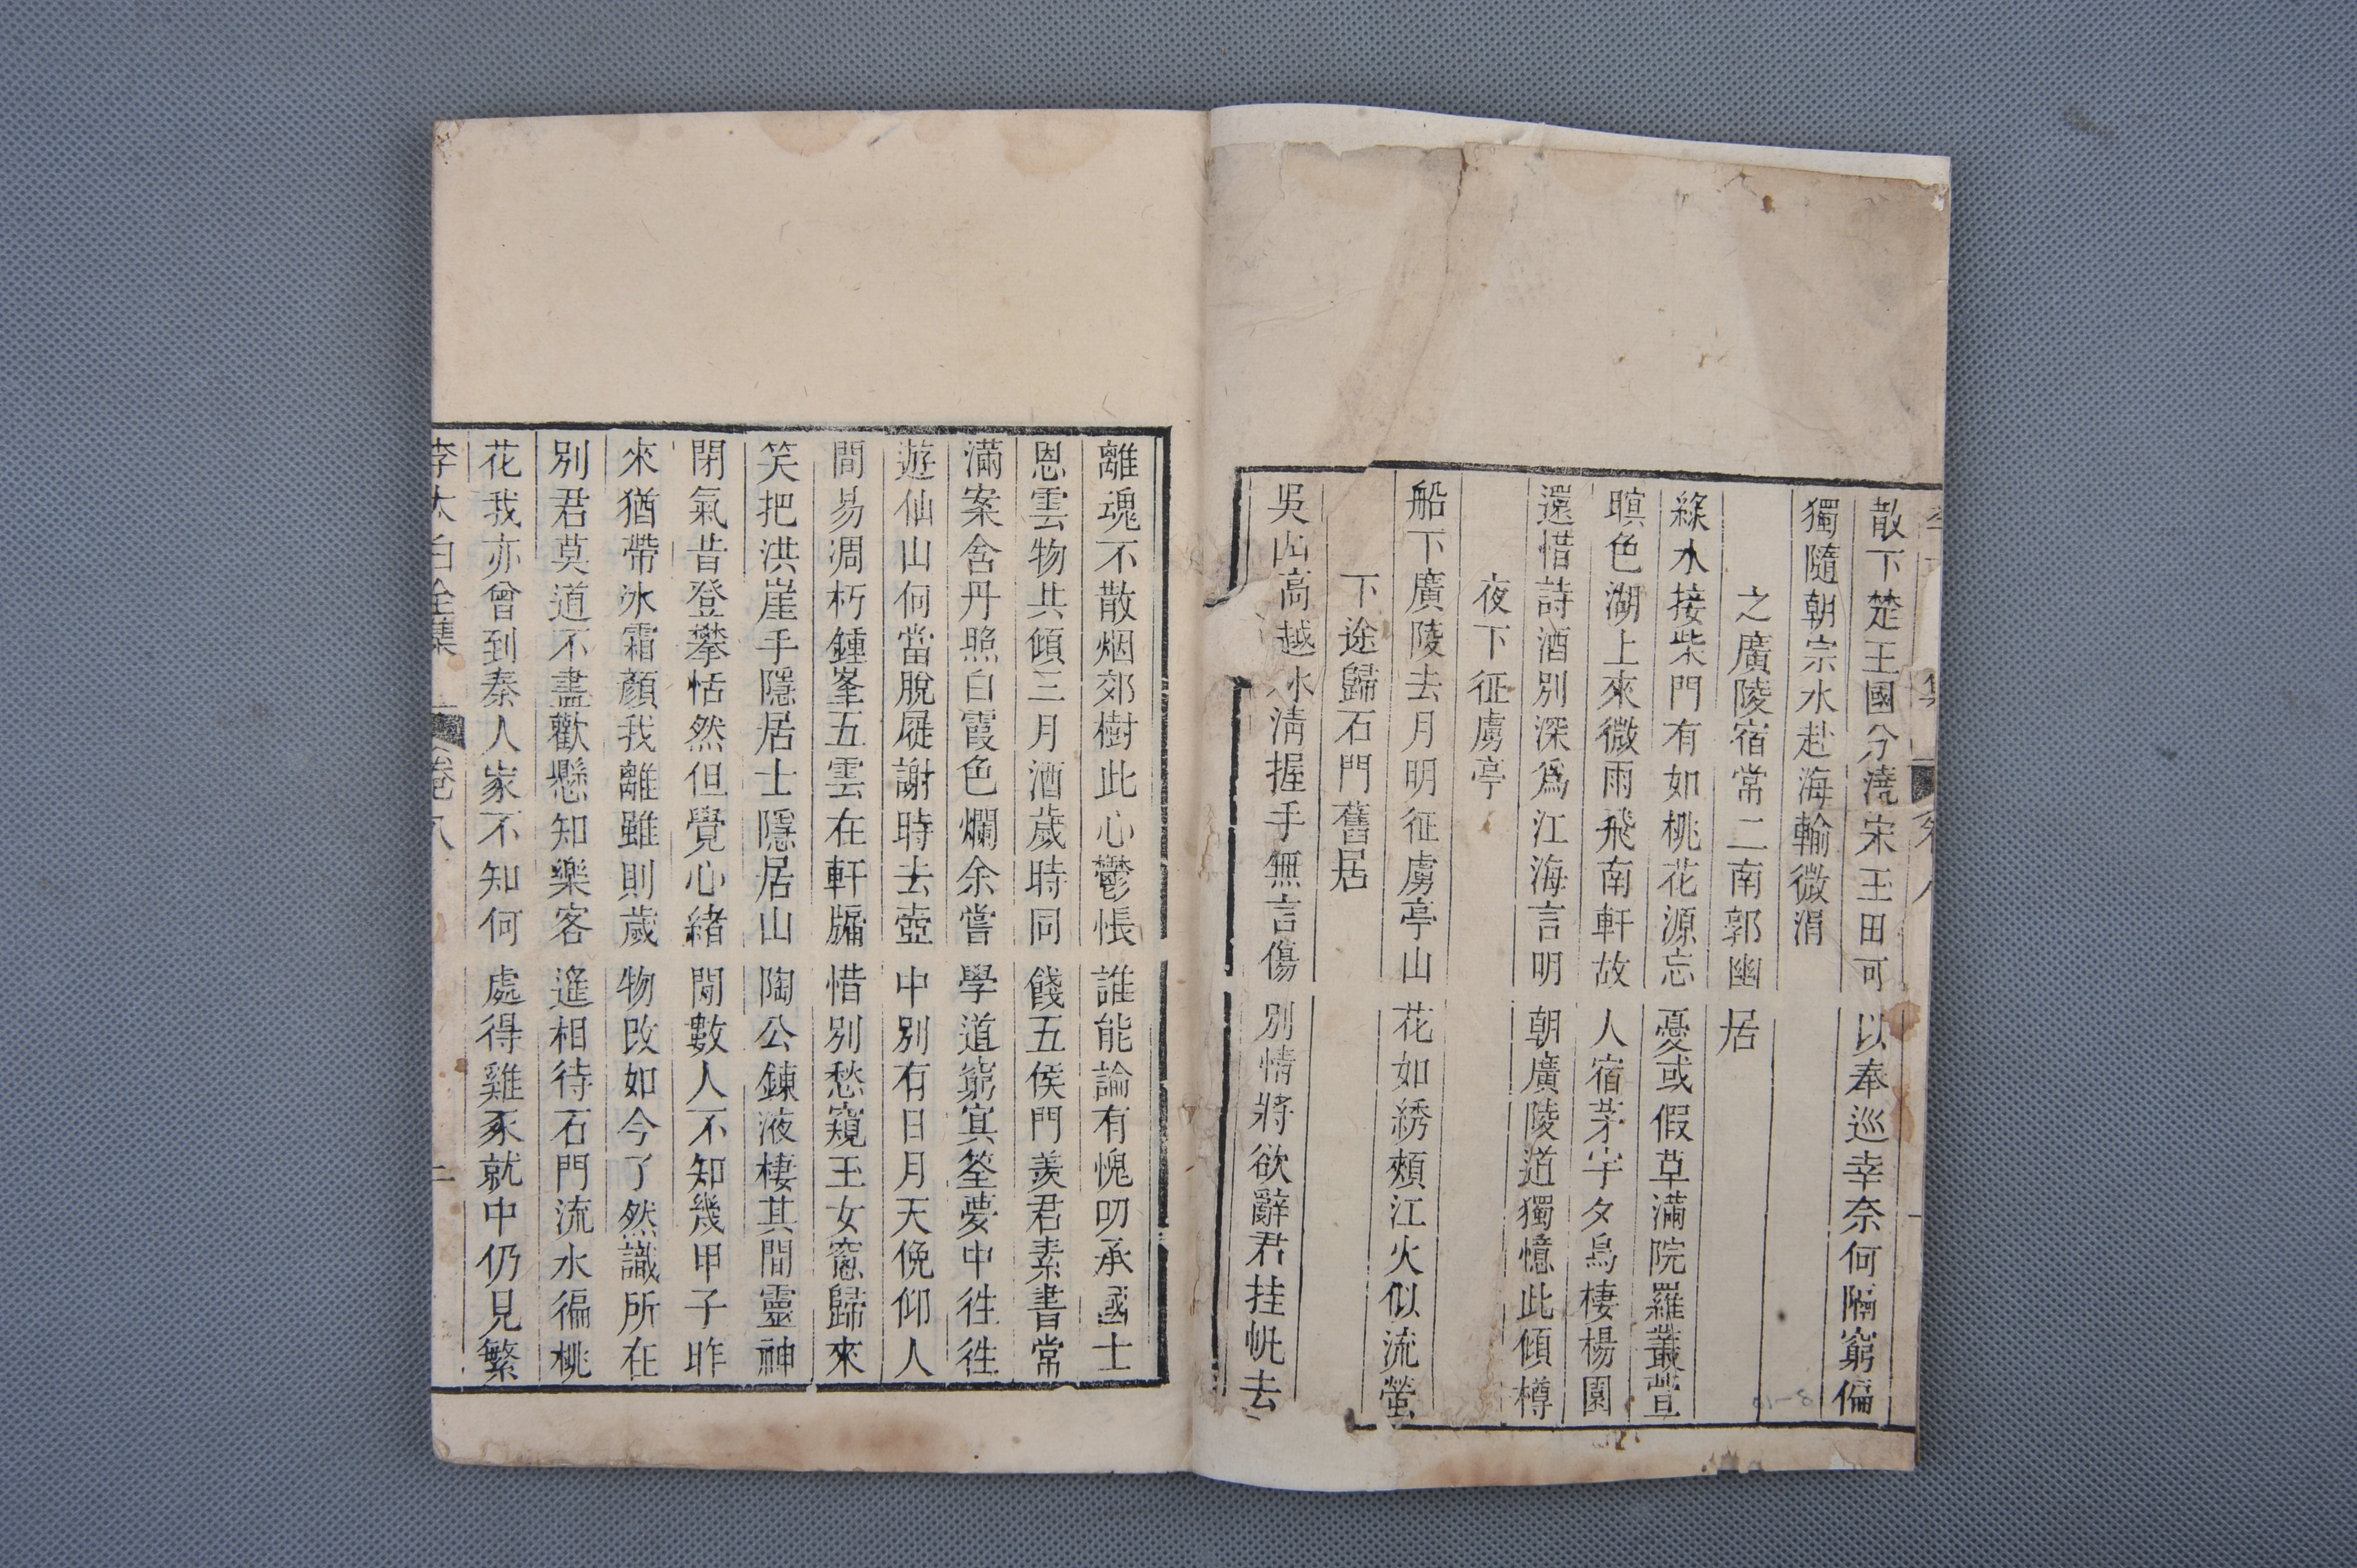 散下楚王國分澆宋玉田可以奉巡幸奈何隔窮偏
獨隨朝宗水赴海輸微涓
之廣陵宿常二南郭幽居
綠水接柴門有如桃花源忘憂或假草滿院羅叢萱
暝色湖上來微雨飛南軒故人宿茅宇夕鳥棲楊園
還惜詩酒別深爲江海言明朝廣陵道獨憶此傾樽
夜下征虜亭
船下廣陵去月明征虜亭山花如綉頰江火似流螢
下途歸石門舊居
吳山高越水淸握手無言傷別情將欲辭君挂帆去
離魂不散烟郊樹此心鬱悵誰能論有愧叨承國士
恩雲物共傾三月酒歲時同餞五侯門羨君素書常
滿案含丹照白霞色爛余嘗學道窮冥筌夢中徃徃
遊仙山何當脫屣謝時去壺中別有日月天俛仰人
間易凋朽鍾峯五雲在軒牖惜別愁窺玉女窻歸來
笑把洪崖手隱居士隱居山陶公鍊液棲其間靈神
閉氣昔登攀恬然但覺心緒閒數人不知幾甲子昨
來猶帶冰霜顏我離雖則歲物改如今了然識所在
別君莫道不盡歡懸知樂客遙相待石門流水徧桃
花我亦曾到秦人家不知何處得雞豕就中仍見繁
李太白全集 卷八